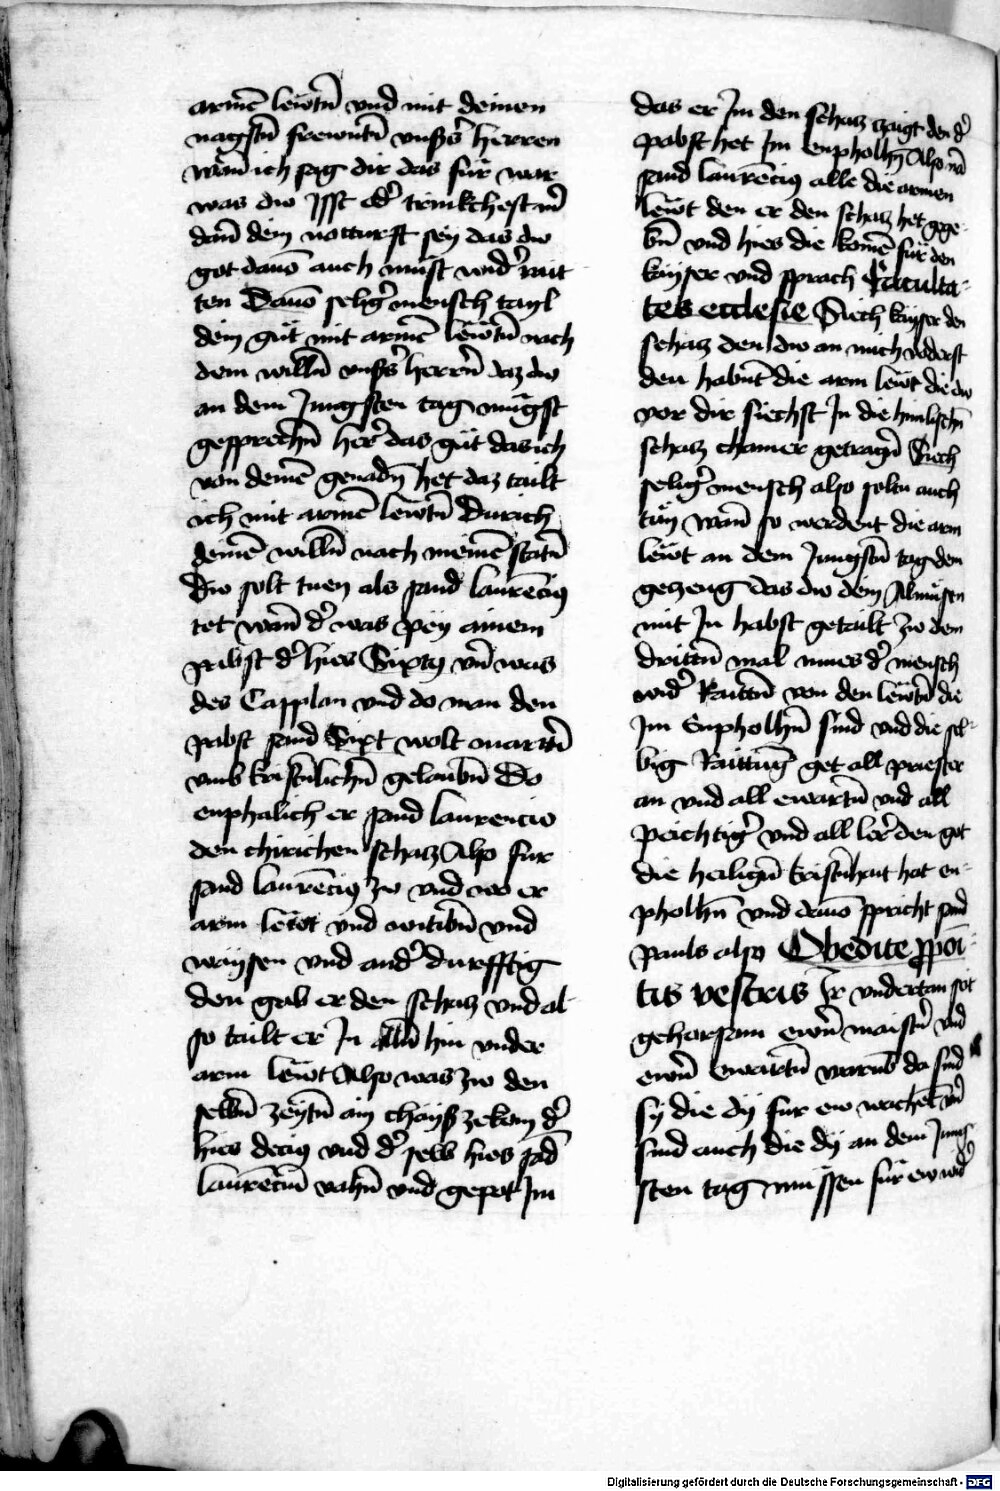 armē lewtn̄ vnd mit deinen
nagstn̄ frewntn̄ vnsꝰs herren
wān ich sag dir das für war
was dw Jsst odꝰ trinkchest an̄
dan̄ dein notturft sey das dw
got dauō auch must widꝰ rait
ten Dauō seligꝰ mensch tayl
dein gut mit armē lewtn̄ nach
dem willn̄ vnsꝰs herrn̄ daz dw
an dem Jungsten tag mugst
gesprechn̄ herꝰ das gut das ich
von deinē genadn̄ het daz tailt
ich mit armē lewtn̄ Durich
deinē willn̄ nach meinē statn̄
Dw solt tuen als sand laurēciꝰ
tet wan̄ dꝰ was pey ainem
pabst dꝰ hies Sixtꝰ vn̄ was
des Capplan vnd do man den
pabst sand Sixt wolt martrn̄
vmb kristnlichn̄ gelaubn̄ Do
enphalich er sand laurencio
den chirichen schatz Also fur
sand laurēciꝰ zw vnd wo er
arm lewt vnd witibn̄ vnd
waysen vnd andꝰ durfftig
den gab er den schatz vnd al-
so tailt er Jn alln̄ hin vnder
arm lewt Also was zw den
selbn̄ zeytn̄ ain chayser dꝰ
hies deciꝰ vnd dꝰ selb hies sād
laurēciū vahn̄ vnd gepot Jm
das er Jm den schatz zaigt den dꝰ
pabst het Jm enpholhn̄ Also nā
sand laurēciꝰ alle die armen
lewt den er den schatz het gege-
bn̄ vnd hies die komē für den
kayser vnd sprach Faculta-
tes ecclesie Siech kayser den
schatz den dw an mich voderst
den habn̄t die arm lewt die dw
vor dir siechst Jn die himlischn̄
schatz chamer getragn̄ Siech
seligꝰ mensch also soltu auch
tun wan̄ so werdent die arm
lewt an dem Jungstn̄ tag dein
gezeug das dw dein Almusen
mit Jn habst getailt Zw dem
drittn̄ mal mues dꝰ mensch
widꝰ Raittn̄ von den lewtn̄ die
Jm Enpholhn̄ sind vnd die sel-
big Raittūg get all priester
an vnd all ewartn̄ vnd all
peichtigꝰ vnd all lerꝰ den got
die heilign̄ kristn̄hait hat en-
pholhn̄ vnd dauō spricht sand
Pauls also Obedite ꝓpoī-
tis vestris Jr vndertan seit
gehorsam ewrn̄ maistrn̄ vnd
ewrn̄ ewartn̄ warūb da sind
sy die dy fur ew wachēt vn̄
sind auch die dy an dem Jung-
sten tag mussen für ew widꝰ
Digitalisierung gefördert durch die Deutsche Forschungsgemeinschaft - DFG